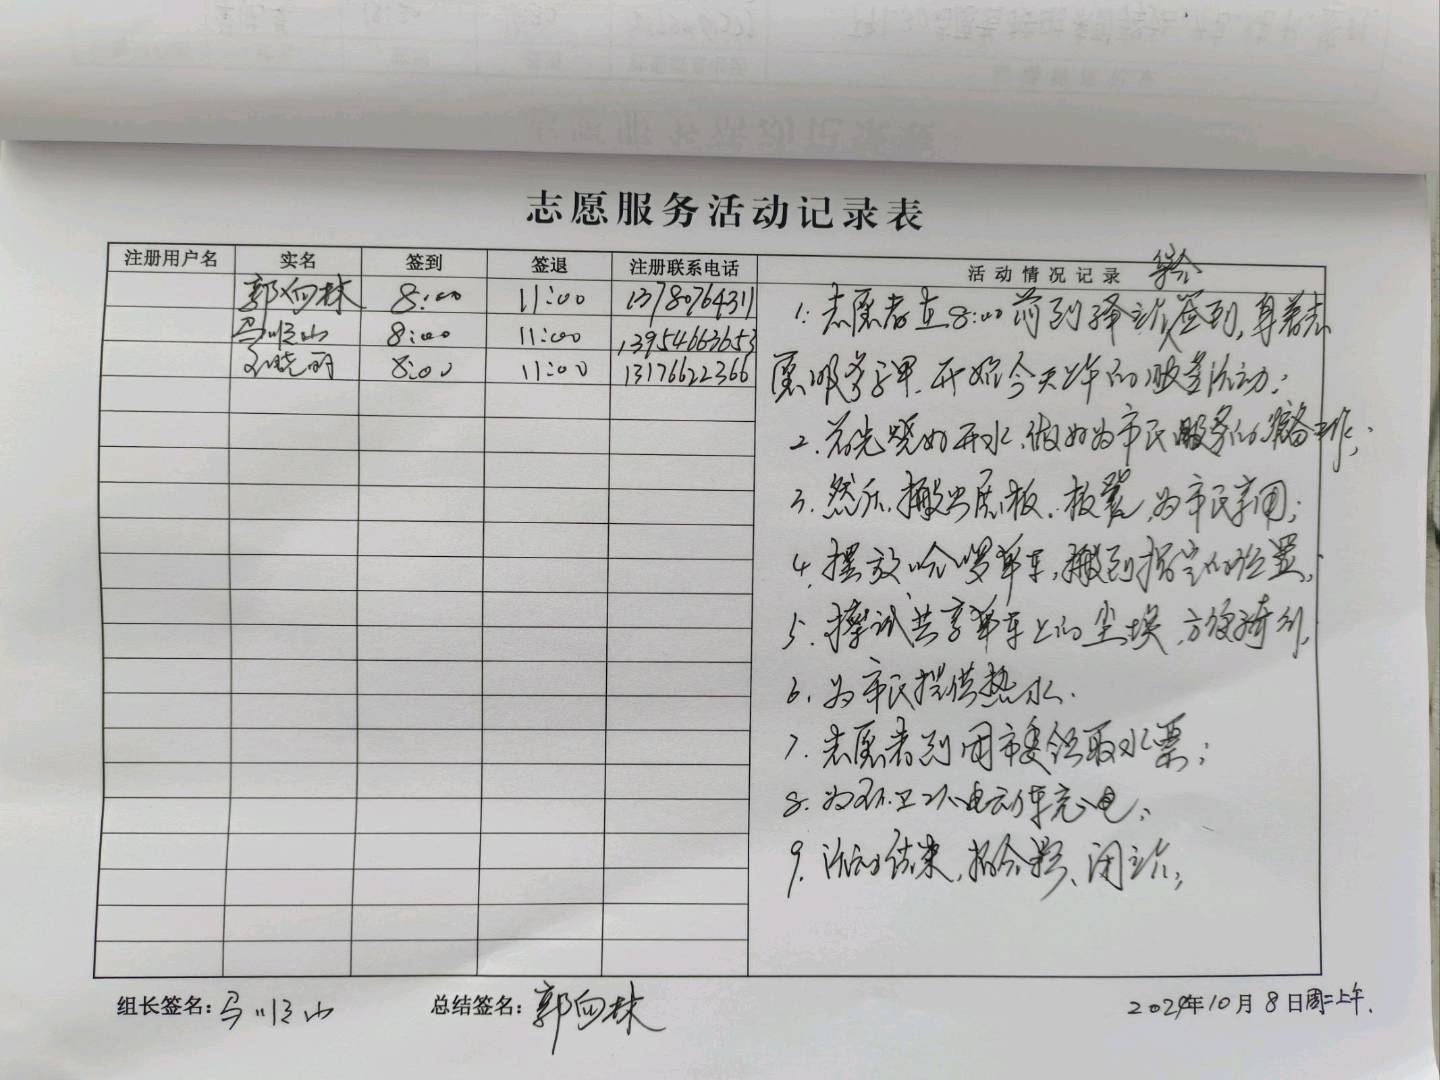 志愿服务活动记录表
注册用户名 实名 签到 签退 注册联系电话 活动情况记录
郭向林 8:00 11:00 13780764311
马顺山 8:00 11:00 13954663653
刘晓丽 8:00 11:00 13176622366
1. 志愿者在8:00前到驿站签到,身着志
愿服务马甲,开始今天上午的服务活动;
2. 首先烧好开水,做好为市民服务的准备工作;
3. 然后,搬出展板、板凳,为市民享用;
4. 摆放哈啰单车,搬到指定的位置;
5. 擦拭共享单车上的尘埃,方便骑行,
6. 为市民提供热水.
7. 志愿者到团市委领取水票;
8. 为环卫工人电动车充电;
9. 活动结束,拍合影、闭站;
组长签名:马顺山 总结签名:郭向林 2024年10月8日周二上午.